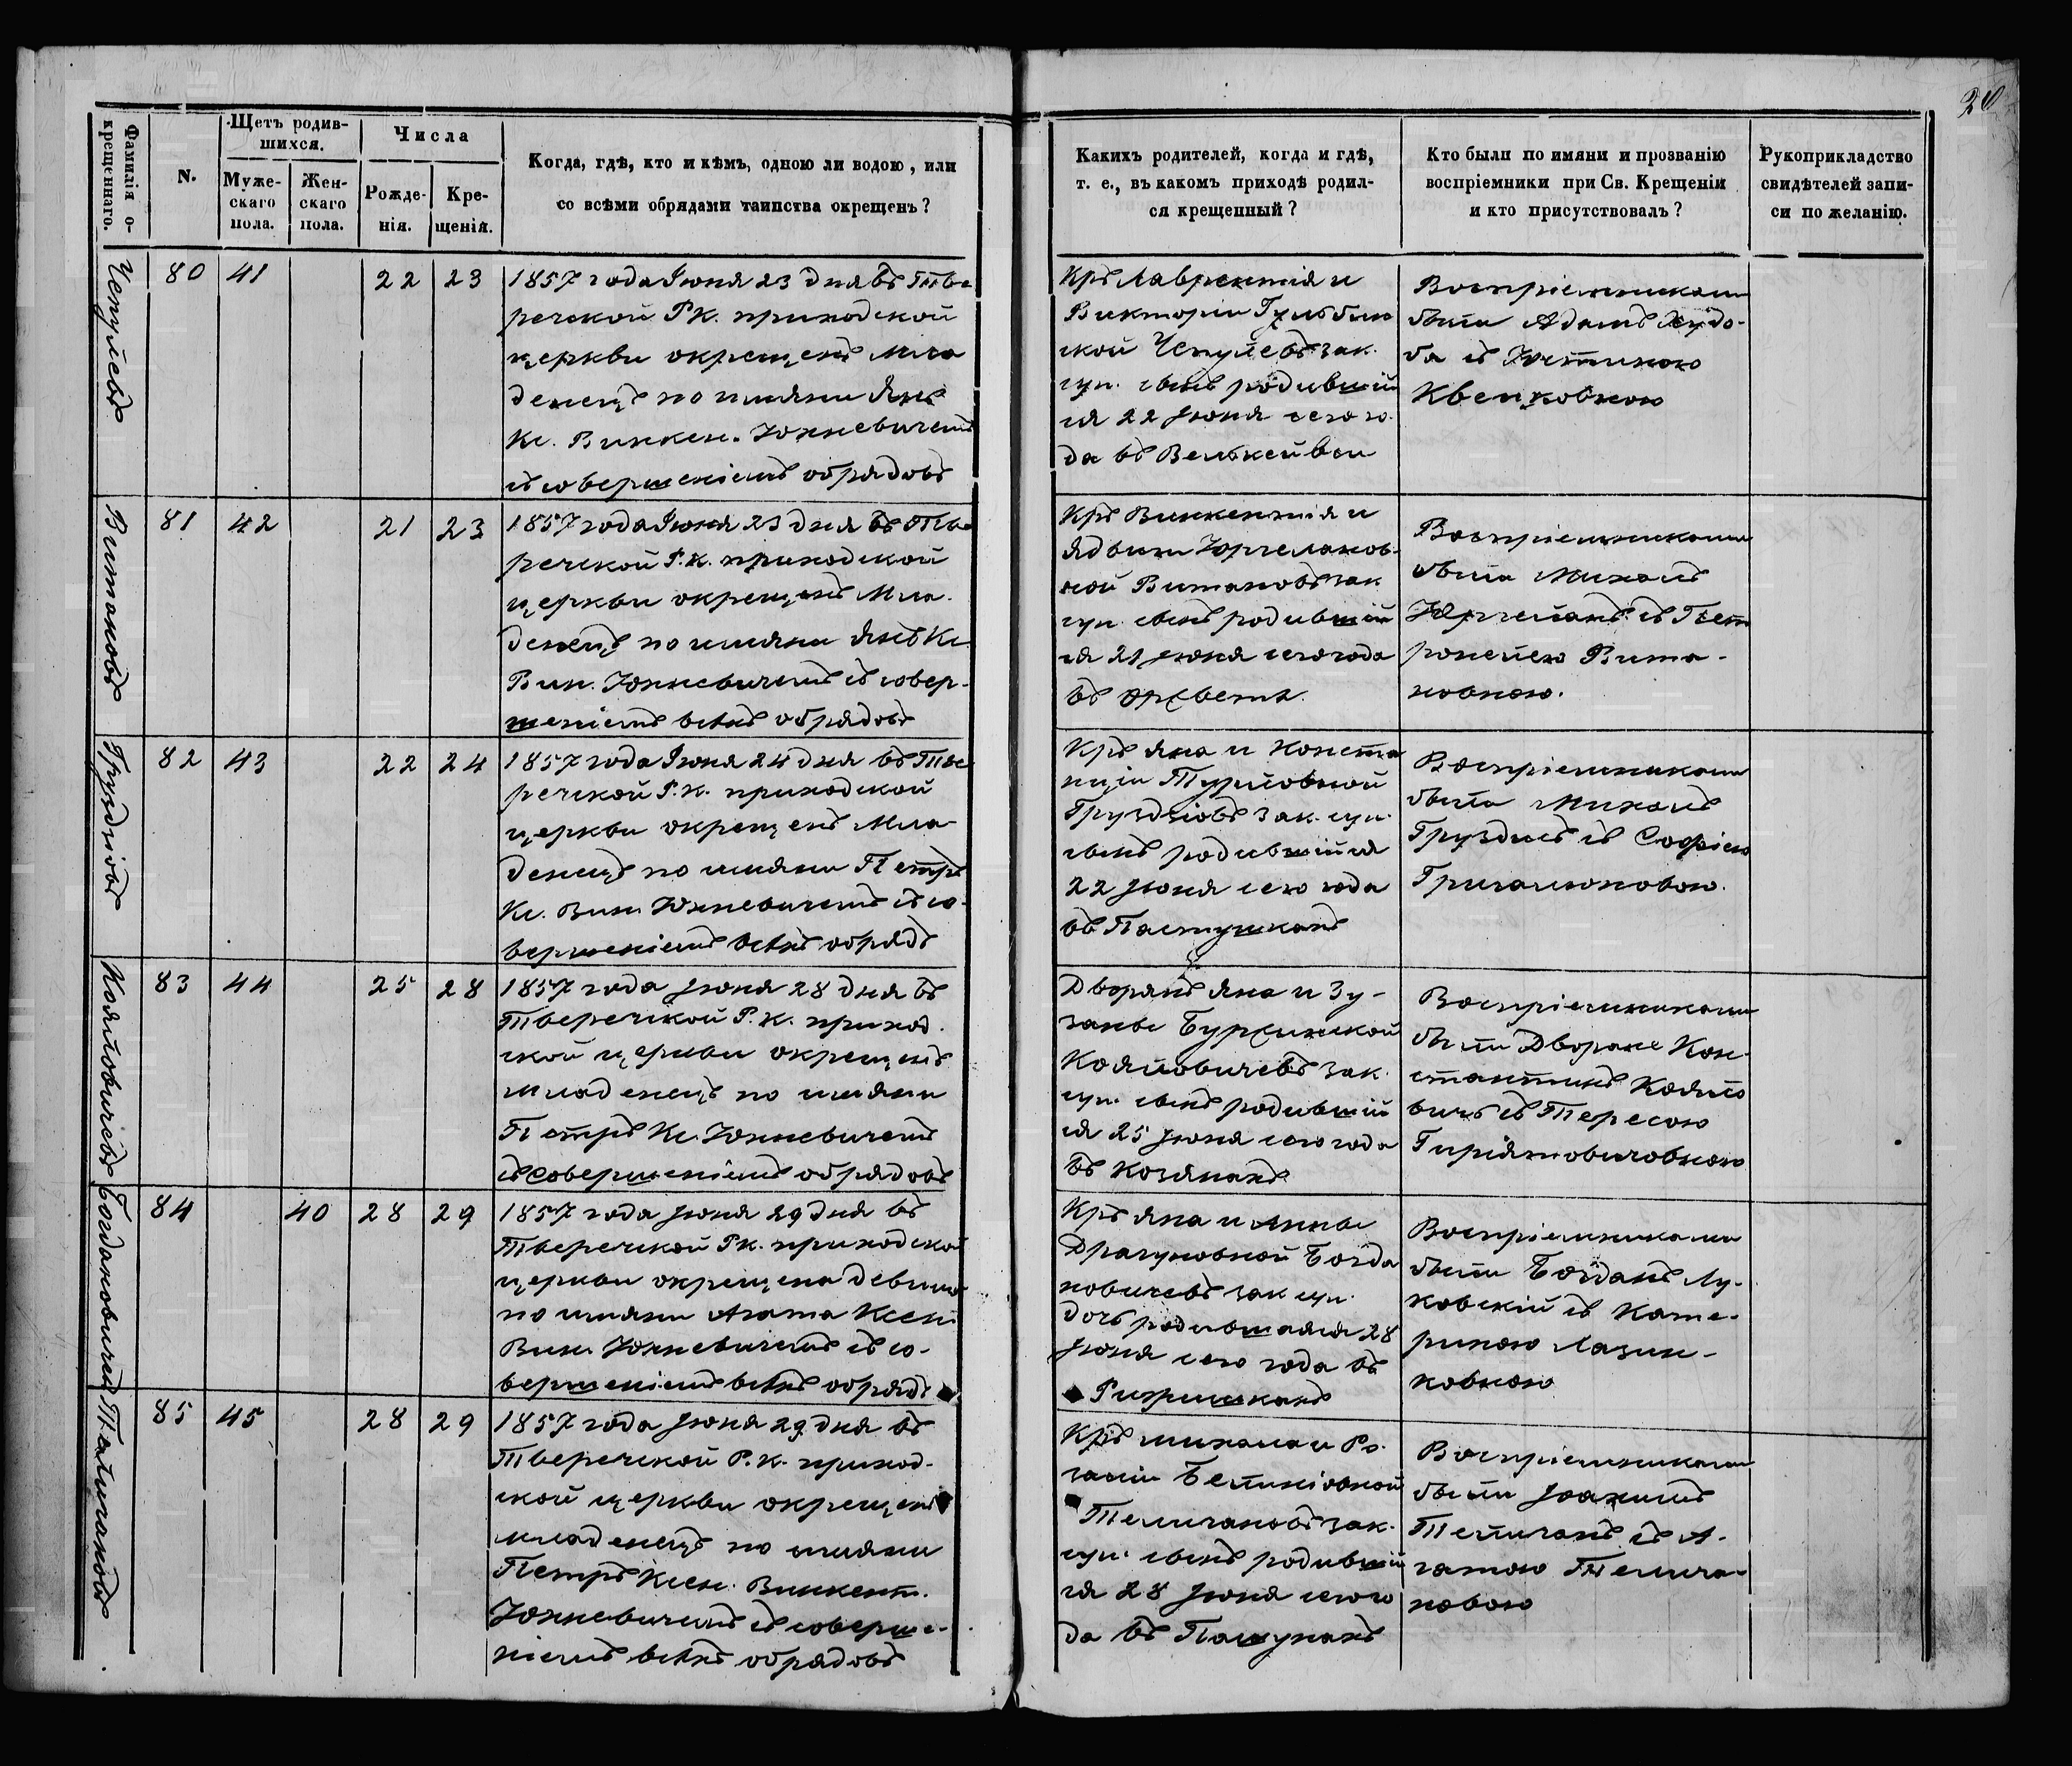 20
Фамилія о-
крещеннаго.
N.
Щетъ родив-
шихся.
Муже-
скаго
пола.
Жен-
скаго
пола.
Числа
Рожде-
нія.
Кре-
щенія.
Когда, гдѣ, кто и кѣмъ, одною ли водою, или
со всѣми обрядами таинства окрещенъ?
Какихъ родителей, когда и гдѣ,
т. е., въ какомъ приходѣ родил-
ся крещенный?
Кто были по имяни и прозванію
воспріемники при Св. Крещеніи
и кто присутствовалъ?
Рукоприкладство
свидѣтелей запи-
си по желанію.
Чепулевъ
80 41 22 23
1857 года Іюня 23 дня въ Тве
речской Р.К. приходской
церкви окрещенъ Мла
денецъ по имяни Янъ
Кс. Винкен. Юхневичемъ
съ совершеніемъ обрядовъ
Кръ Лаврентія и
Викторіи Гульбин
ской Чепулевъ зак.
суп. сынъ родившій
ся 22 Іюня сего го
да въ
Воспріемниками
были Адамъ
съ Юстиною
Витановъ
81 42 21 23
1857 года Іюня 23 дня въ Тве
речской Р.К. приходской
церкви окрещенъ Мла-
денецъ по имяни Янъ Кс.
Вин. Юхневичемъ съ совер-
шеніемъ всѣхъ обрядовъ
Кръ Винкентія и
Ядвиги Юргеланов-
ной Витановъ зак
суп. сынъ родившій
ся 21 Іюня сего года
въ
Воспріемниками
были Михаилъ
Юргеланъ съ Пет
ронелею Вита-
новною.
Груздіовъ
82 43 22 24
1857 года Іюня 24 дня въ Тве
речской Р.К. приходской
церкви окрещенъ Мла-
денецъ по имяни Петръ
Кс. Вин. Юхневичемъ съ со-
вершеніемъ всѣхъ обрядъ
Кръ Яна и Конста
нціи Турловной
Груздіовъ зак. суп.
сынъ родившійся
22 Іюня сего года
въ Пастушкахъ
Воспріемниками
были Михаилъ
Груздисъ съ Софіею
Кояловичевъ
83 44 25 28
1857 года Іюня 28 дня въ
Тверечской Р.К. приход-
ской церкви окрещенъ
младенецъ по имяни
Петръ Кс. Юхневичемъ
съ совершеніемъ обрядовъ
Дворянъ Яна и Зу-
занны
Кояловичевъ зак.
суп. сынъ родившій
ся 25 Іюня сего года
въ Козянахъ
Воспріемниками
были Дворане Кон-
стантинъ Коялло
вичъ съ Тересою
Богдановичевъ
84 40 28 29
1857 года Іюня 29 дня въ
Тверечской Р.К. приходской
церкви окрещена девица
по имяни Агата Ксен.
Вин. Юхневичемъ съ со-
вершеніемъ всѣхъ обрядъ
Кръ Яна и Анны
Драгуновной Богда
новичевъ зак суп.
дочь родившаяся 28
Іюня сего года въ
Воспріемниками
были Богданъ Лу-
ковскій съ Кате-
риною Лазин-
ковною
Таличановъ
85 45 28 29
1857 года Іюня 29 дня въ
Тверечской Р.К. приход-
ской церкви окрещенъ
младенецъ по имяни
Петръ Ксен. Винкент.
Юхневичемъ съ соверше-
ніемъ всѣхъ обрядовъ
Кръ Михала и Ро-
заліи
Теличановъ зак.
суп. сынъ родившій
ся 28 Іюня сего го
да въ Пашунахъ
Воспріемниками
были Іоахимъ
Теличанъ съ А-
гатою Телича-
новою